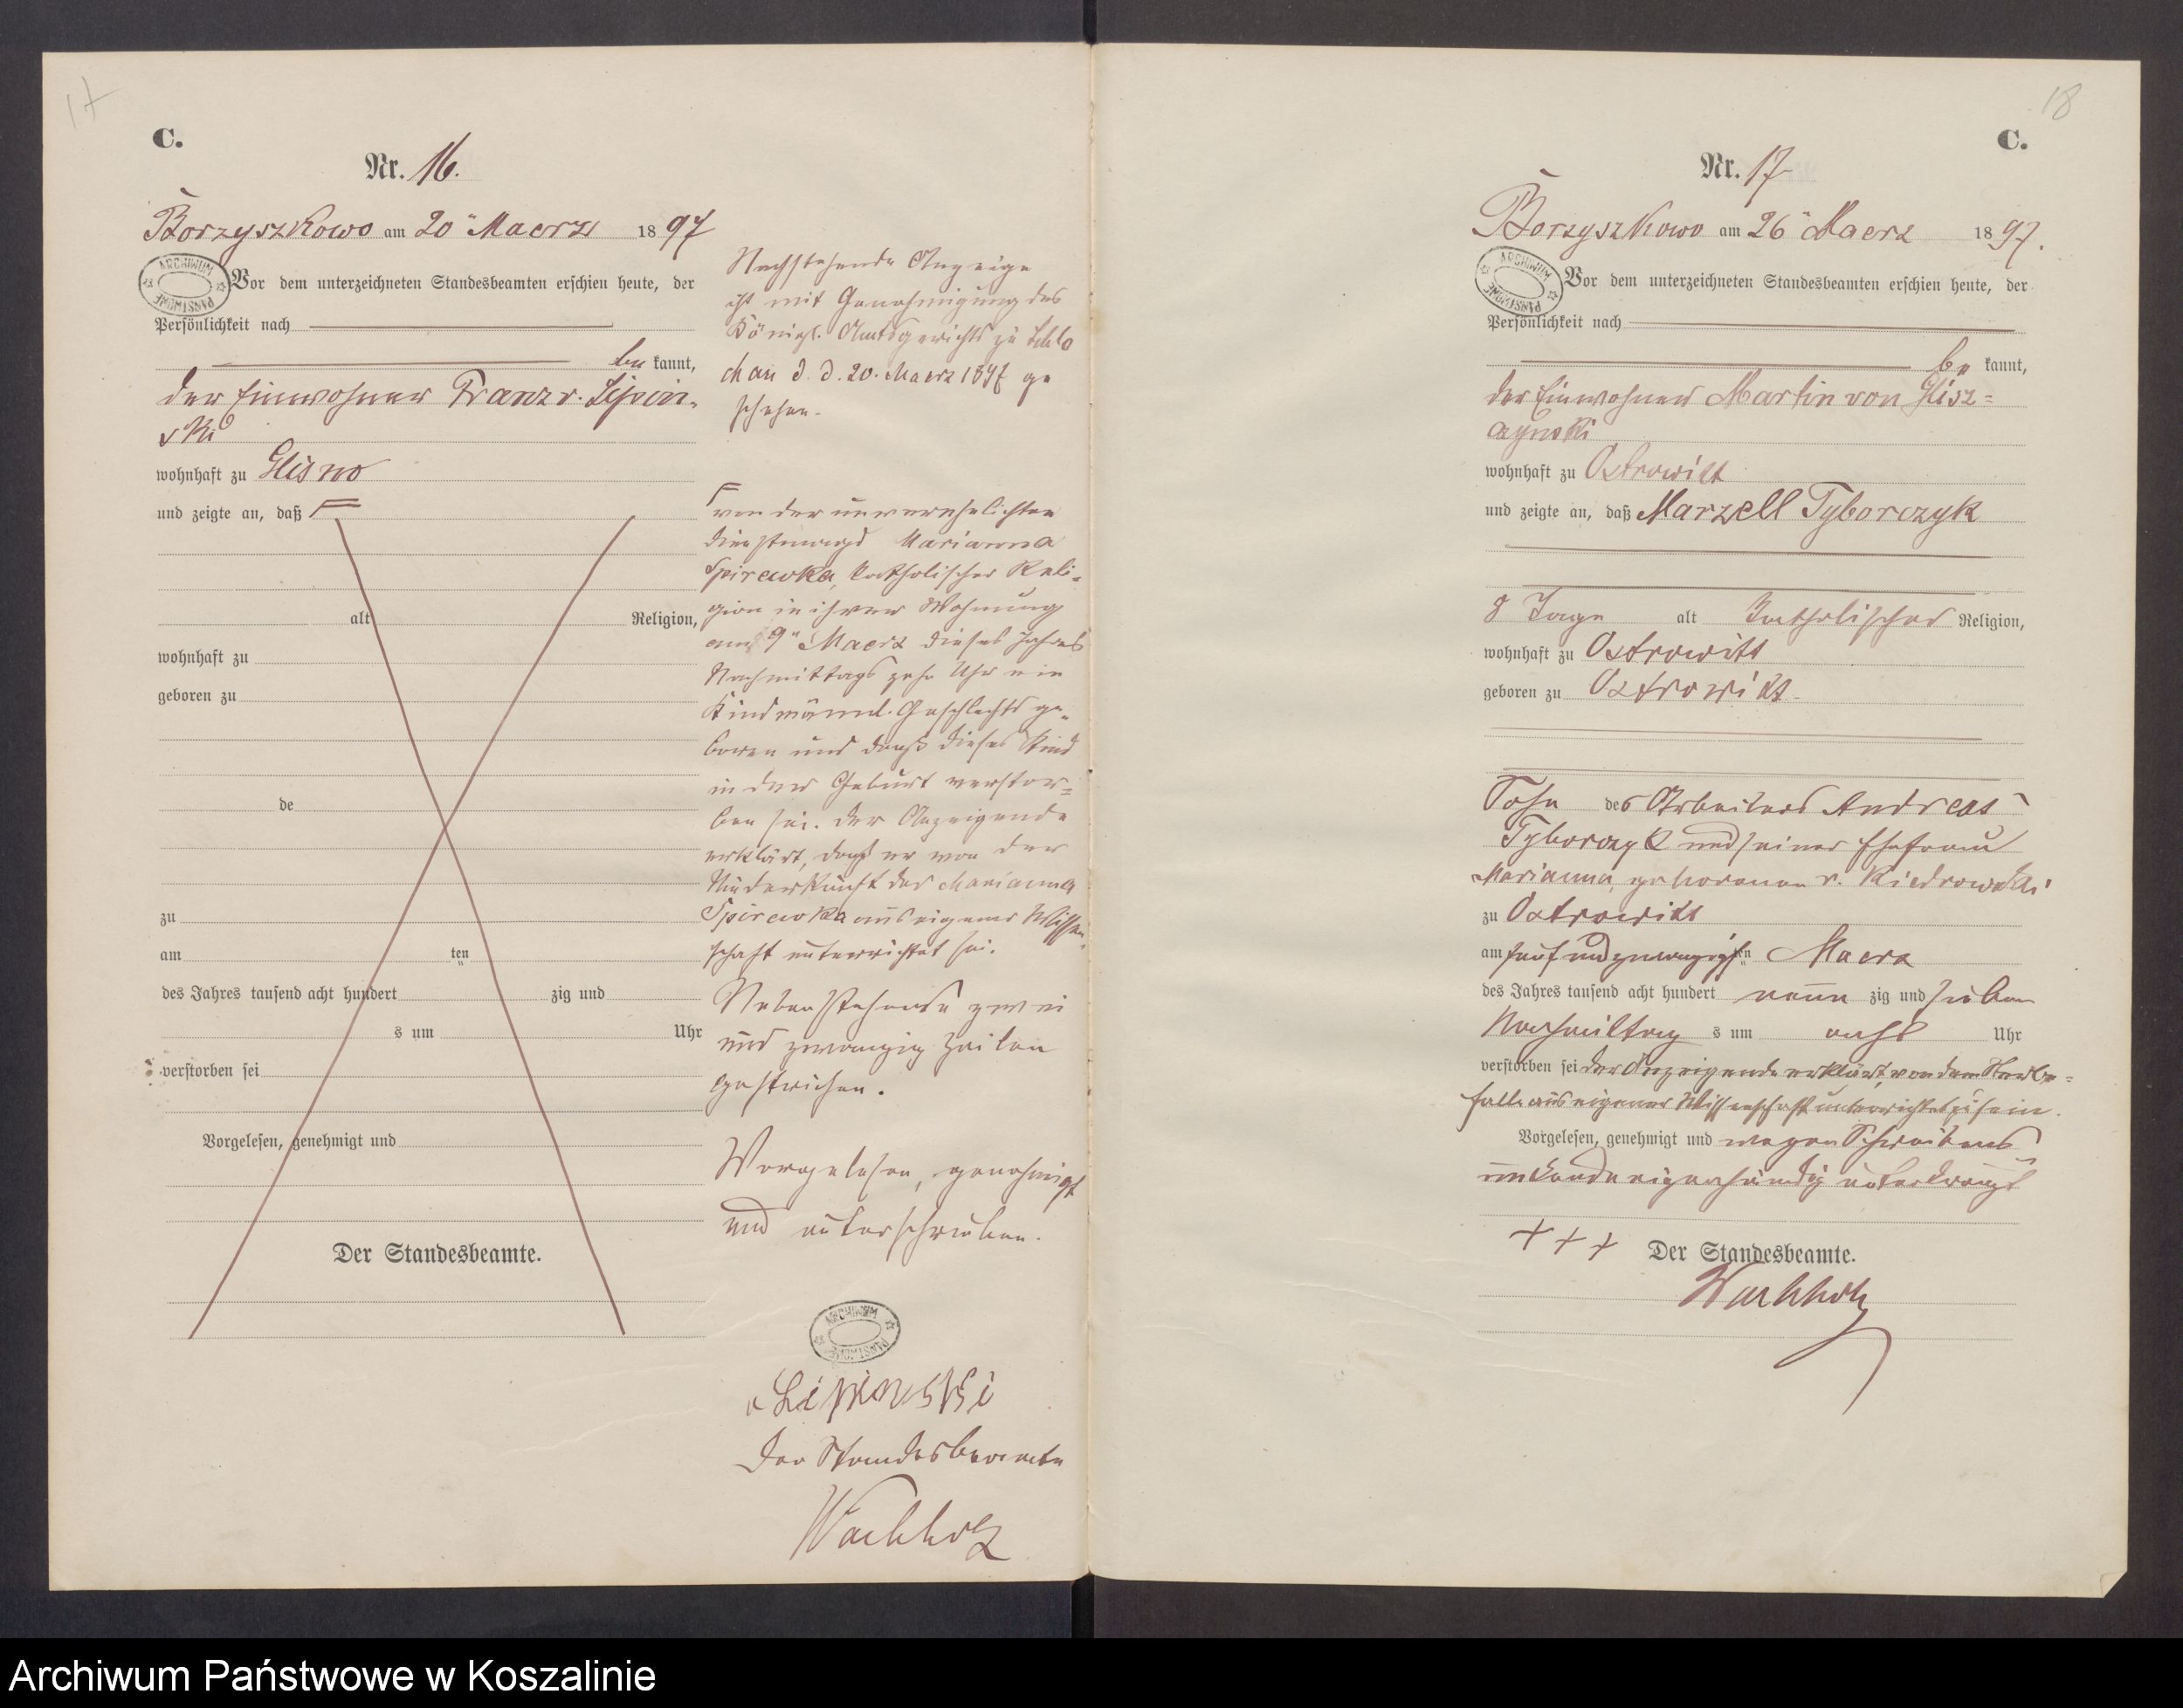 17
C.
Nr. 16.
Borzyszkowo am 20ten Maerz 1897
ARCHIWUM PAŃSTWOWE
Vor dem unterzeichneten Standesbeamten erschien heute, der
Persönlichkeit nach
be kannt,
der Einwohner Franz v. Lipin-
ski
wohnhaft zu Glisno
und zeigte an, daß
alt Religion,
wohnhaft zu
geboren zu
de
zu
am ten
des Jahres tausend acht hundert zig und
s um Uhr
verstorben sei
Vorgelesen, genehmigt und
Der Standesbeamte.
Nachstehende Anzeige
ist mit Genehmigung des
Königl. Amtsgerichts zu Schlo
chau d. d. 20. Maerz 1897 ge
schehen.
von der unverehelichten
Dienstmagd Marianna
katholischer Reli-
gion in ihrer Wohnung
am 9ten Maerz dieses Jahres
Nachmittags zehn Uhr ein
Kind männl. Geschlechts ge-
boren und daß dieses Kind
in der Geburt verstor-
ben sei. Der Anzeigende
erklärt, daß er von der
Niederkunft der Marianna
aus eigener Wissen-
schaft unterrichtet sei.
Nebenstehende zwei
und zwanzig Zeilen
gestrichen.
Vorgelesen, genehmigt
und unterschrieben.
ARCHIWUM PAŃSTWOWE
v Lipinski
Der Standesbeamte
Wachholz
18
C.
Nr. 17
Borzyszkowo am 26ten Maerz 1897.
ARCHIWUM PAŃSTWOWE
Vor dem unterzeichneten Standesbeamten erschien heute, der
Persönlichkeit nach
be kannt,
der Einwohner Martin von Glisz=
czynski
wohnhaft zu Ostrowitt
und zeigte an, daß Marzell Tyborczyk
8 Tage alt katholischer Religion,
wohnhaft zu Ostrowitt
geboren zu Ostrowitt
Sohn des Arbeiters Andreas
Tyborczyk und seiner Ehefrau
Marianna, geborenen v. Kiedrowski
zu Ostrowitt
am fünf und zwanzigsten Maerz
des Jahres tausend acht hundert neun zig und sieben
Nachmittag s um acht Uhr
verstorben sei der Anzeigende erklärt, von dem Sterbe=
falle aus eigener Wissenschaft unterrichtet zu sein.
Vorgelesen, genehmigt und wegen Schreibens
unkunde eigenhändig unterkreuzt
+++ Der Standesbeamte.
Wachholz
Archiwum Państwowe w Koszalinie